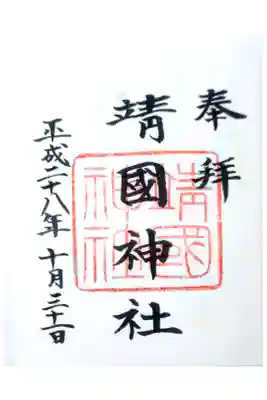 奉拝
靖國神社
平成二十八年 十月三十一日
靖國
神社